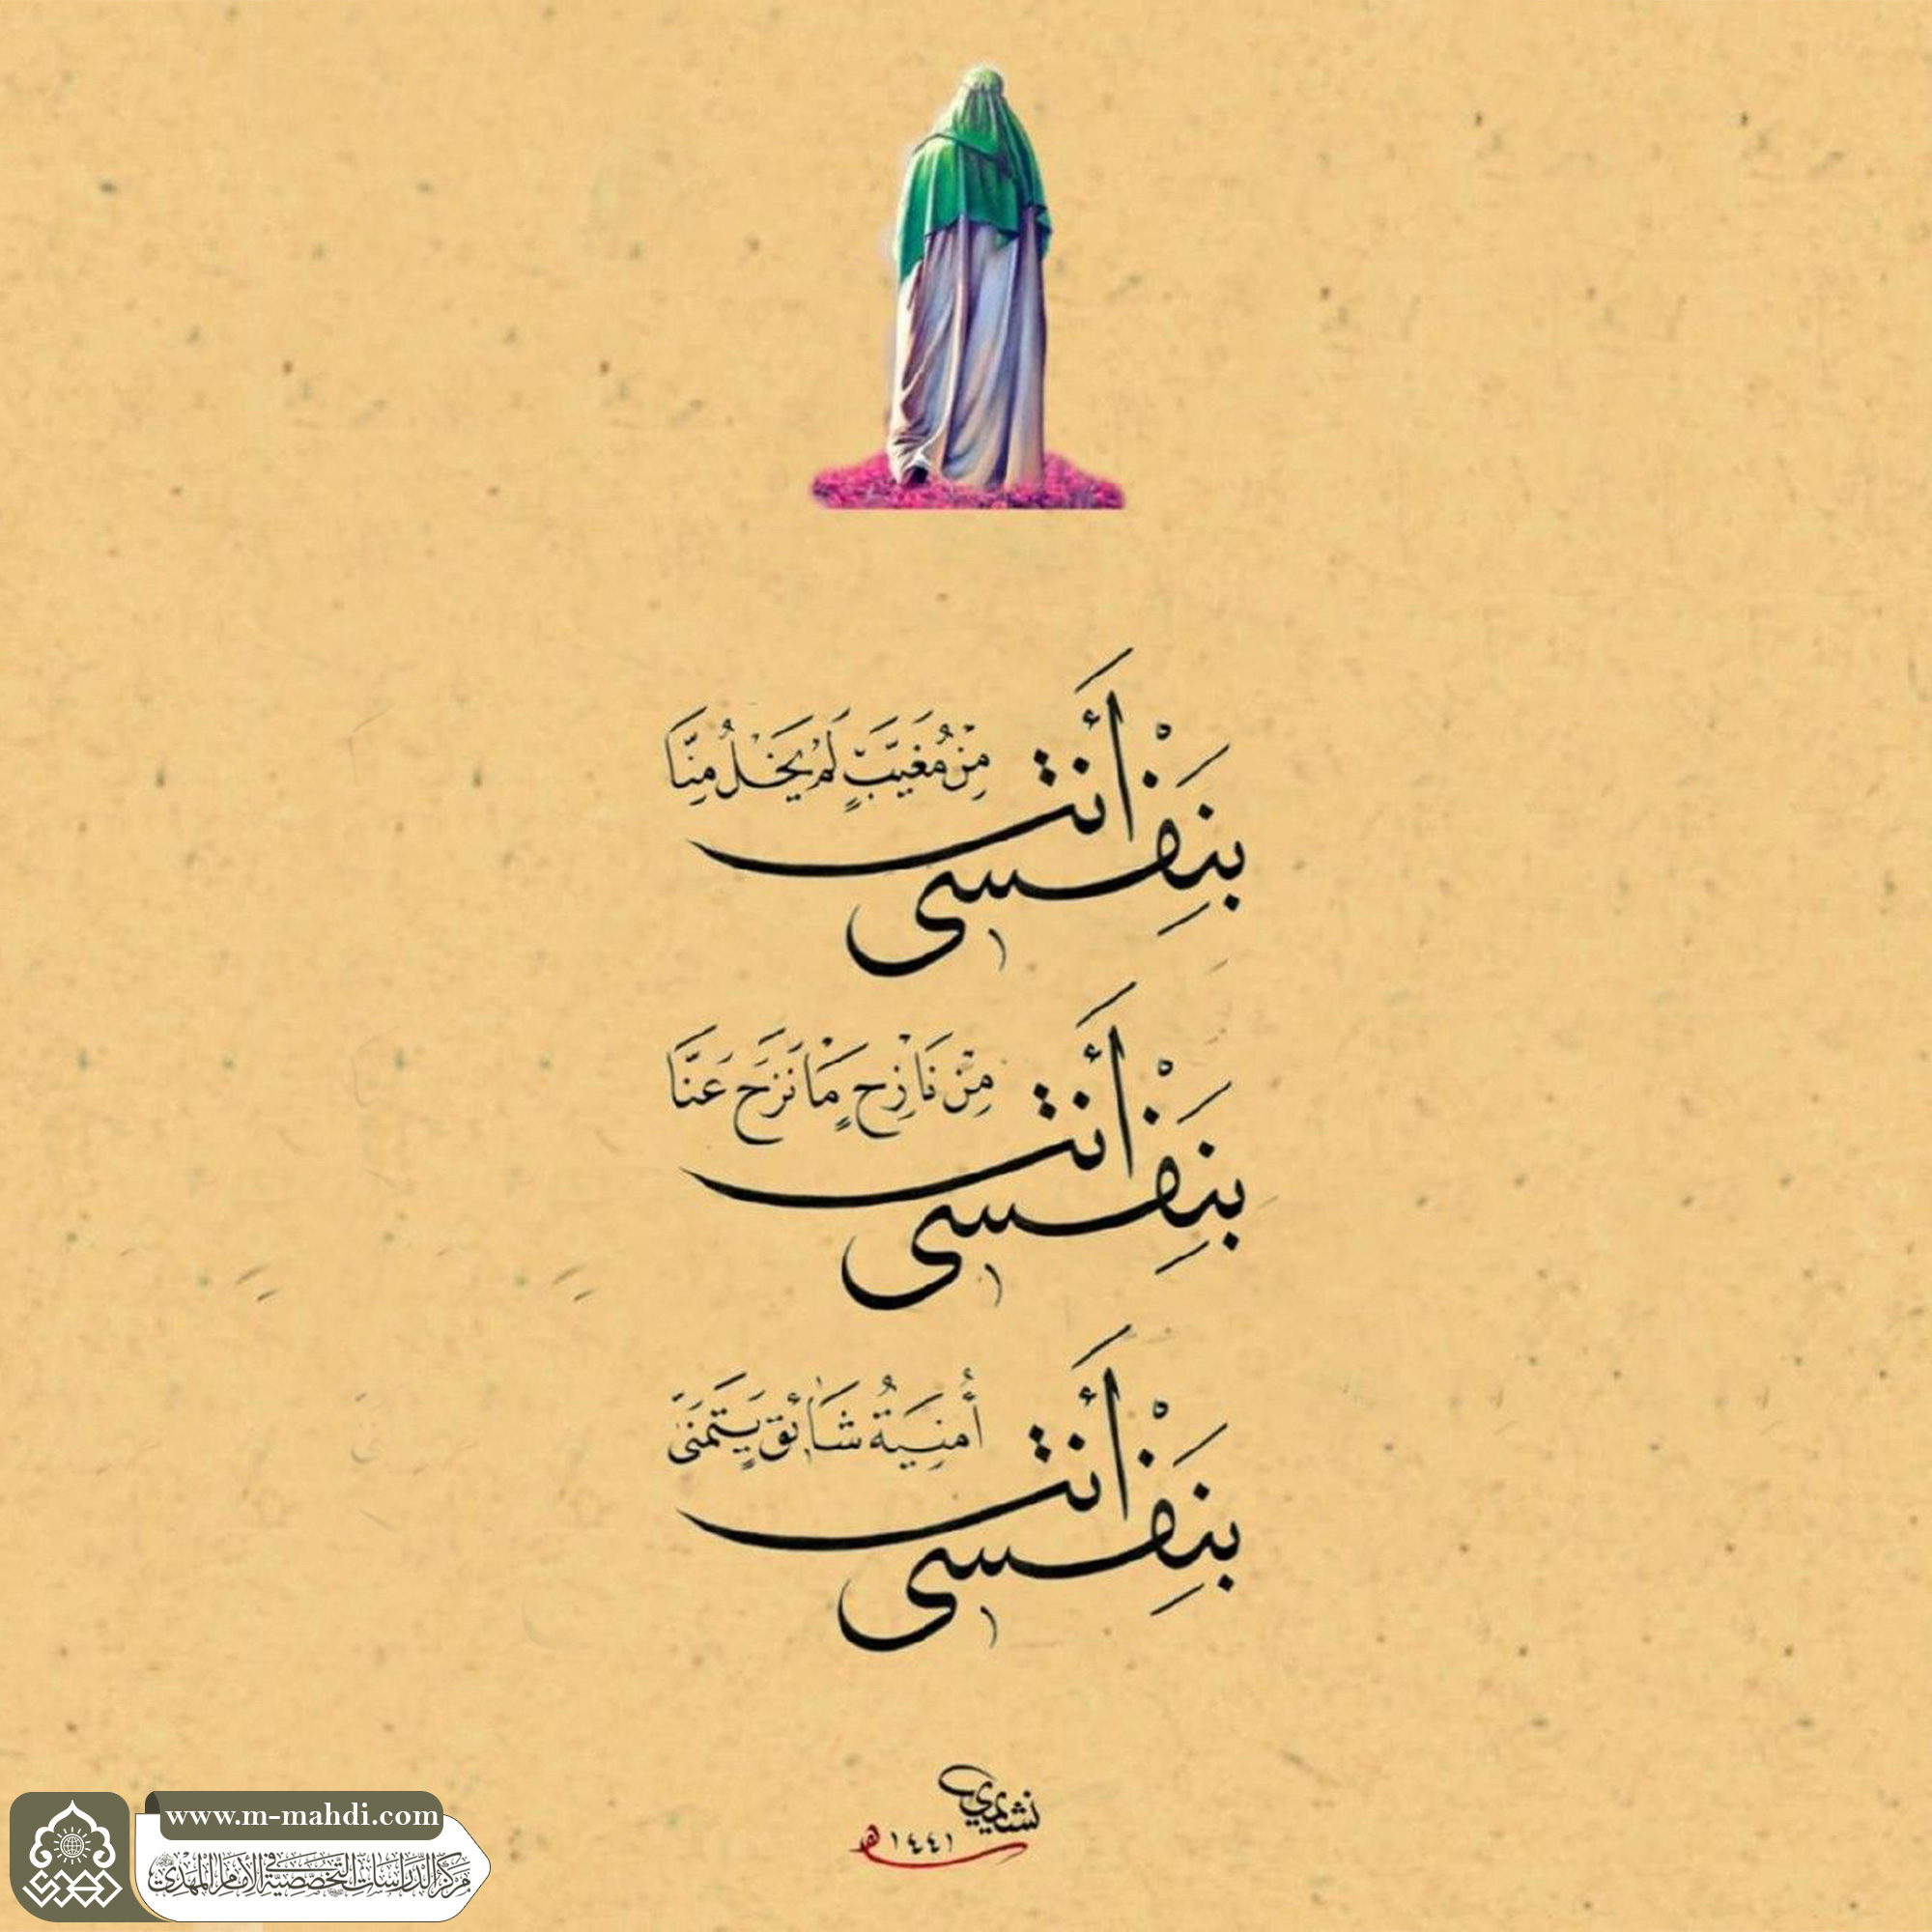 بِنَفْسِي أَنْتَ مِنْ مُغَيَّبٍ لَمْ يَخْلُ مِنَّا
بِنَفْسِي أَنْتَ مِنْ نَازِحٍ مَا نَزَحَ عَنَّا
بِنَفْسِي أَنْتَ أُمْنِيَةُ شَائِقٍ يَتَمَنَّى
١٤٤١هـ
www.m-mahdi.com
مركز الدراسات التخصصية في الإمام المهدي